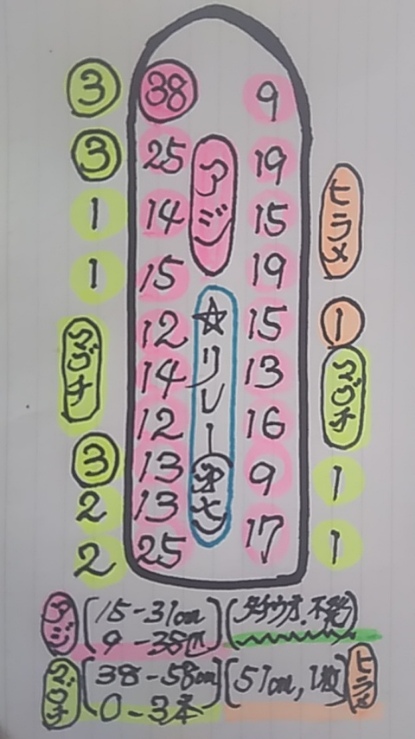 ③ 38 9
③ 25 19
アジ
1 14 15
ヒラメ
1 15 19
☆リレー
12 15 ①
マゴチ
14 13
マゴチ
12 16
③ 13 9 1
2 13
2 25 17 1
アジ (15-31cm) (タチウオ.不発)
9-38匹
マゴチ (38-58cm) 1枚 ヒラメ
0-3本